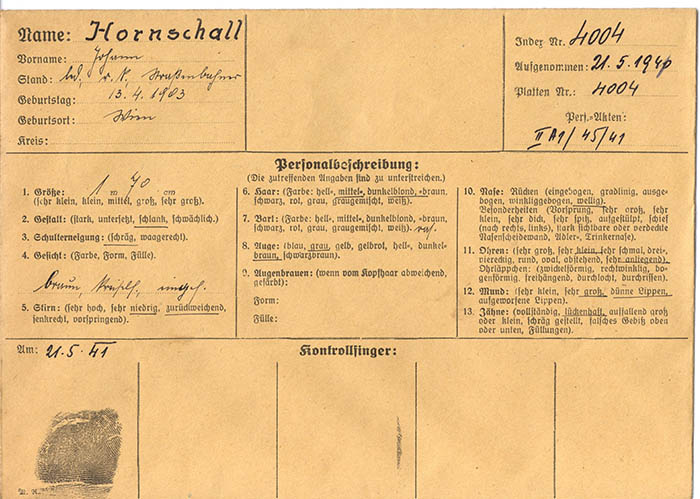 Name: Hornschall
Vorname: Johann
Stand: led. r. k. Straßenbahner
Geburtstag: 13. 4. 1903
Geburtsort: Wien
Kreis:
Index Nr. 4004
Aufgenommen: 21. 5. 1941
Platten Nr.: 4004
Pers.-Akten:
II A1/45/41
Personalbeschreibung:
(Die zutreffenden Angaben sind zu unterstreichen.)
1. Größe: 1 m 70 cm
(sehr klein, klein, mittel, groß, sehr groß).
2. Gestalt: (stark, untersetzt, schlank, schwächlich).
3. Schulterneigung: (schräg, waagerecht).
4. Gesicht: (Farbe, Form, Fülle)
braun,
5. Stirn: (sehr hoch, sehr niedrig, zurückweichend,
senkrecht, vorspringend).
6. Haar: (Farbe: hell-, mittel-, dunkelblond, -braun,
schwarz, rot, grau, graugemischt, weiß).
7. Bart: (Farbe: hell-, mittel-, dunkelblond, -braun,
schwarz, rot, grau, graugemischt, weiß) ras.
8. Auge: (blau, grau, gelb, gelbrot, hell-, dunkel-
braun, schwarzbraun).
9. Augenbrauen: (wenn vom Kopfhaar abweichend,
gefärbt):
Form:
Fülle:
10. Nase: Rücken (eingebogen, gradlinig, ausge-
bogen, winkliggebogen, wellig).
Besonderheiten (Vorsprung, sehr groß, sehr
klein, sehr dick, sehr spitz, aufgestülpt, schief
(nach rechts, links), stark sichtbare oder verdeckte
Nasenscheidewand, Adler-, Trinkernase).
11. Ohren: (sehr groß, sehr klein, sehr schmal, drei-,
viereckig, rund, oval, abstehend, sehr anliegend).
Ohrläppchen: (zwickelförmig, rechtwinkelig, bo-
genförmig, freihängend, durchlocht, durchrissen).
12. Mund: (sehr klein, sehr groß, dünne Lippen,
aufgeworsene Lippen).
13. Zähne: (vollständig, lückenhaft, auffallend groß
oder klein, schräg gestellt, falsches Gebiß oben
oder unten, Füllungen).
Am: 21. 5. 41
Kontrollfinger: